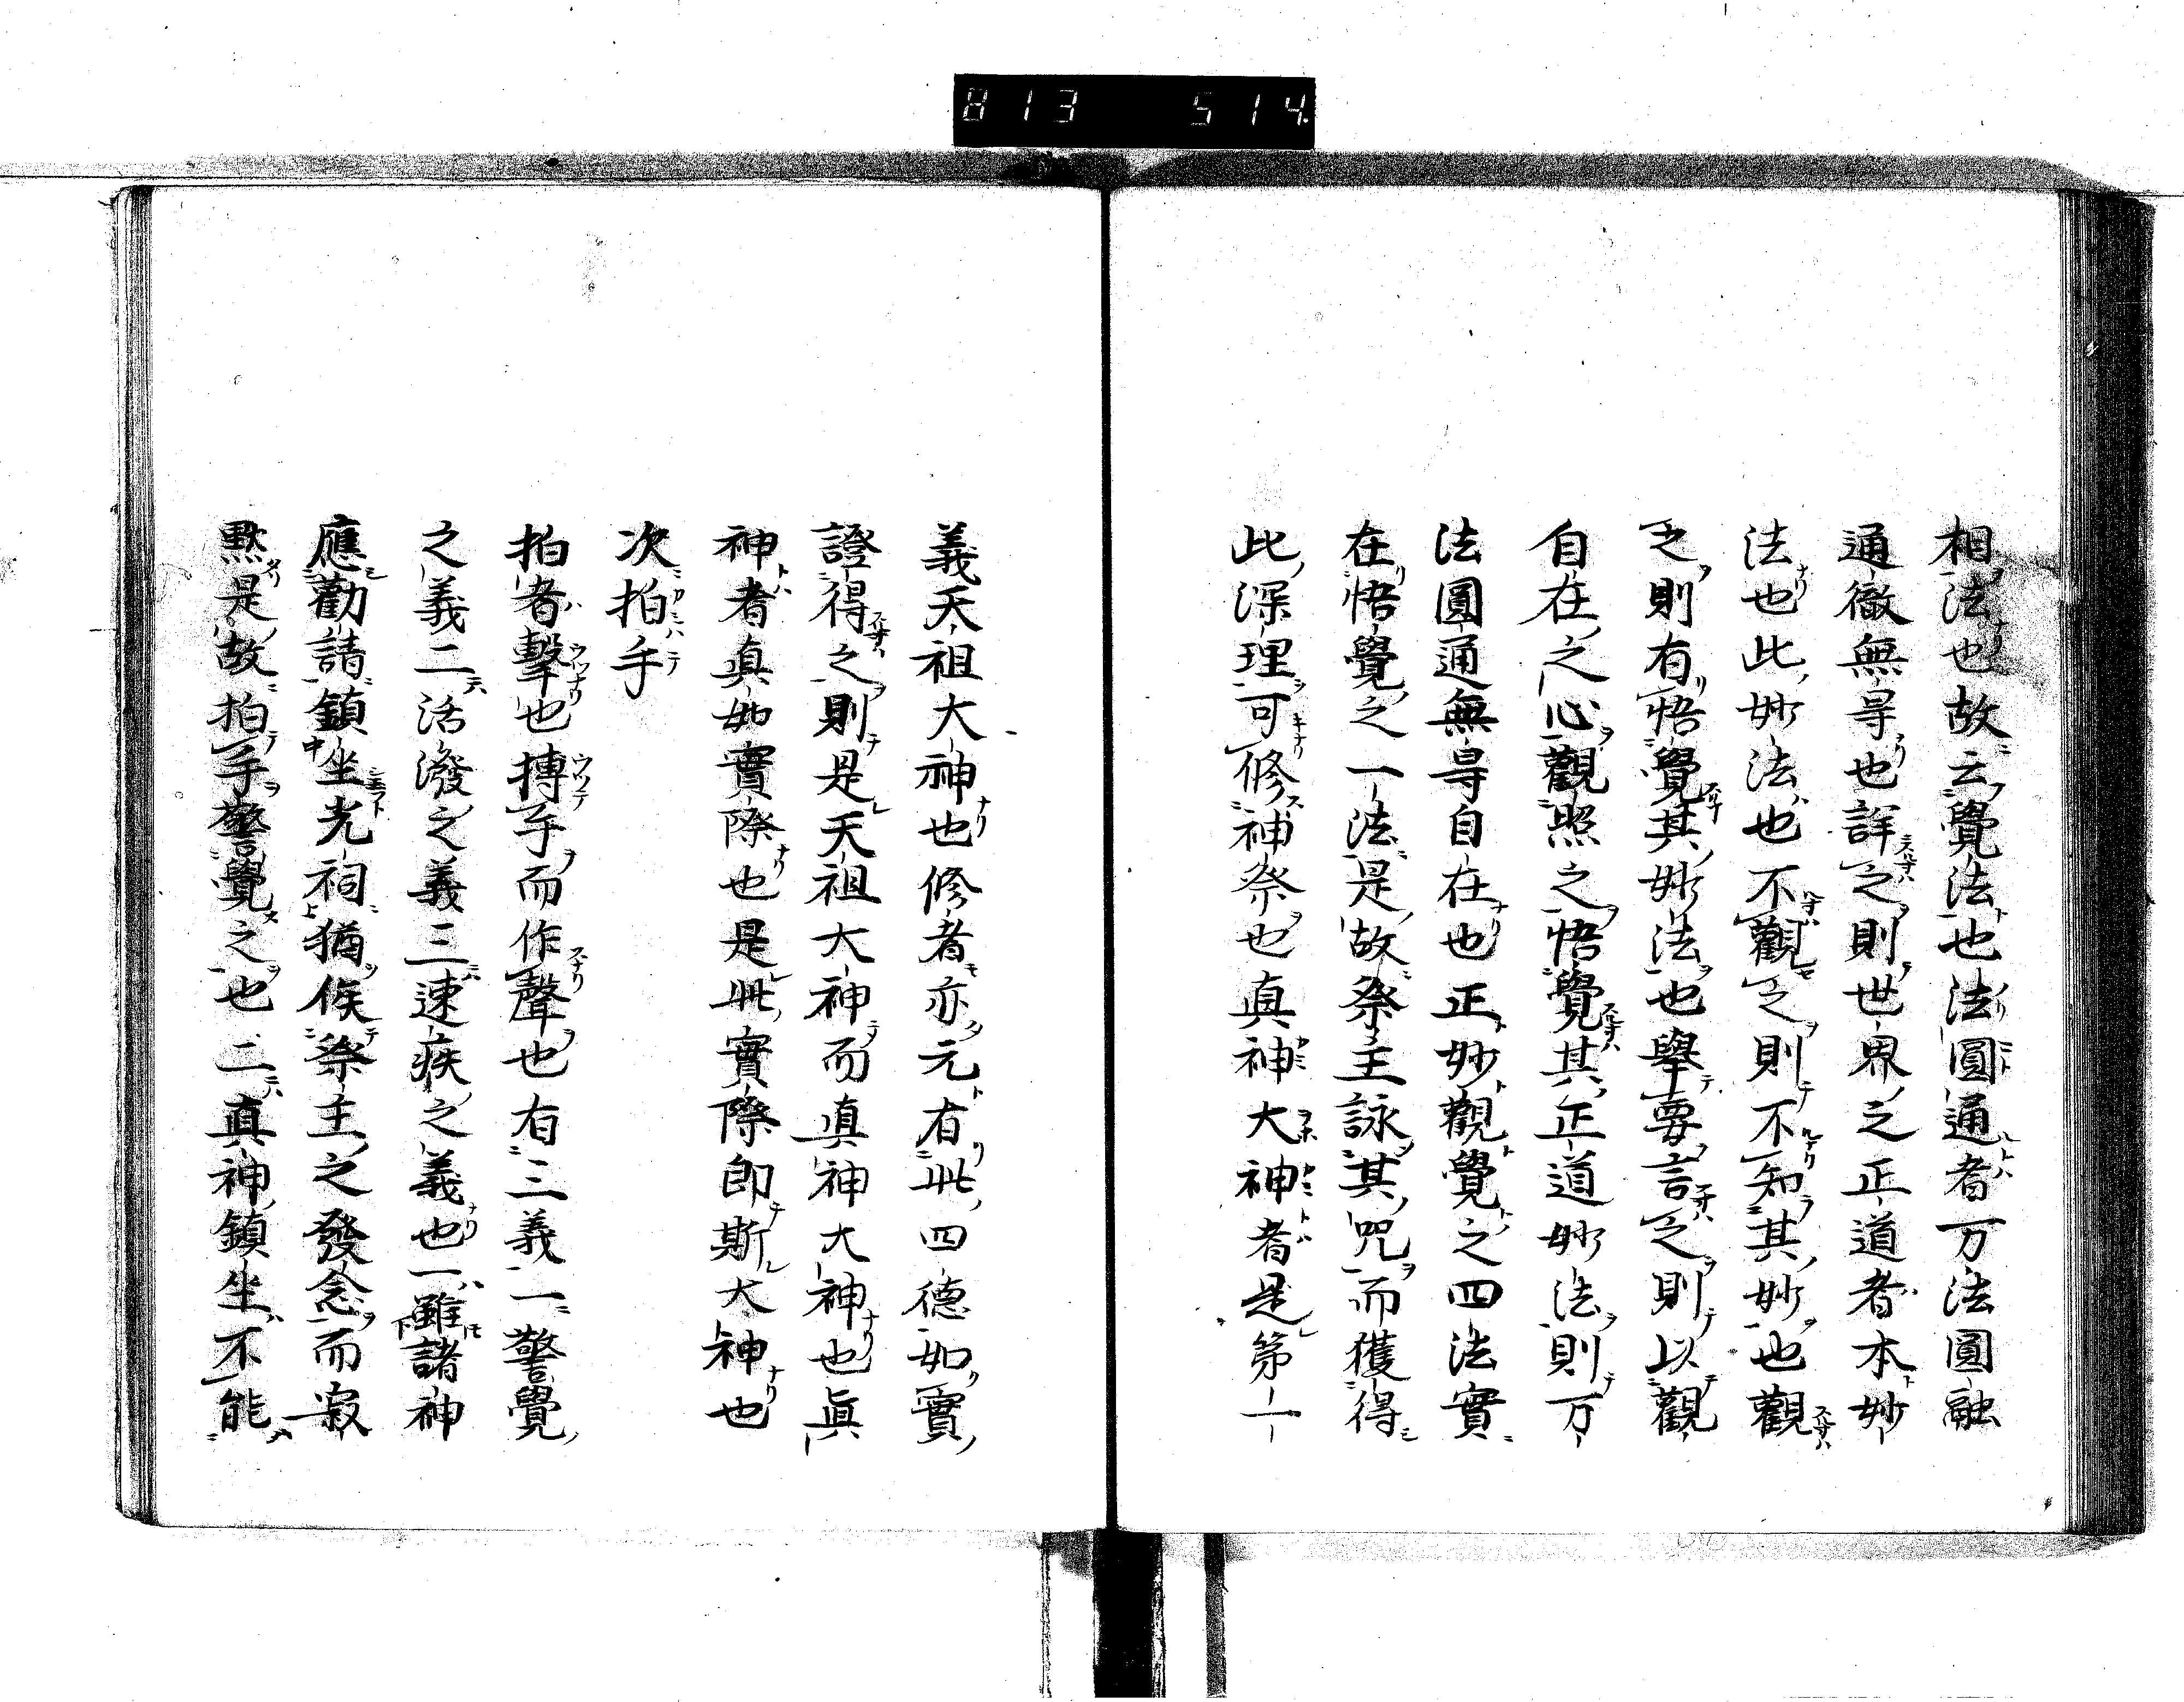 813 514
相法也故云覺法也法圓通者万法圓融
通徹無导也詳之則世界之正道者本妙
法也此妙法也不觀之則不知其妙也觀
之則有悟覺其妙法也舉要言之則以觀
自在之心觀照之悟覺其正道妙法則万
法圓通無导自在也正妙觀覺之四法實
在悟覺之一法是故祭主詠其咒而獲得
此深理可修神祭也真神大神者是第一
義天祖大神也修者亦元有此四德如實
證得之則是天祖大神而真神大神也眞
神者真如實際也是此實際即斯大神也
次拍手
拍者擊也搏手而作聲也有三義一警覺
之義二活潑之義三速疾之義也一雖諸神
應勸請鎮坐光祠猶俟祭主之發念而寂
默是故拍手警覺之也二真神鎮坐不能